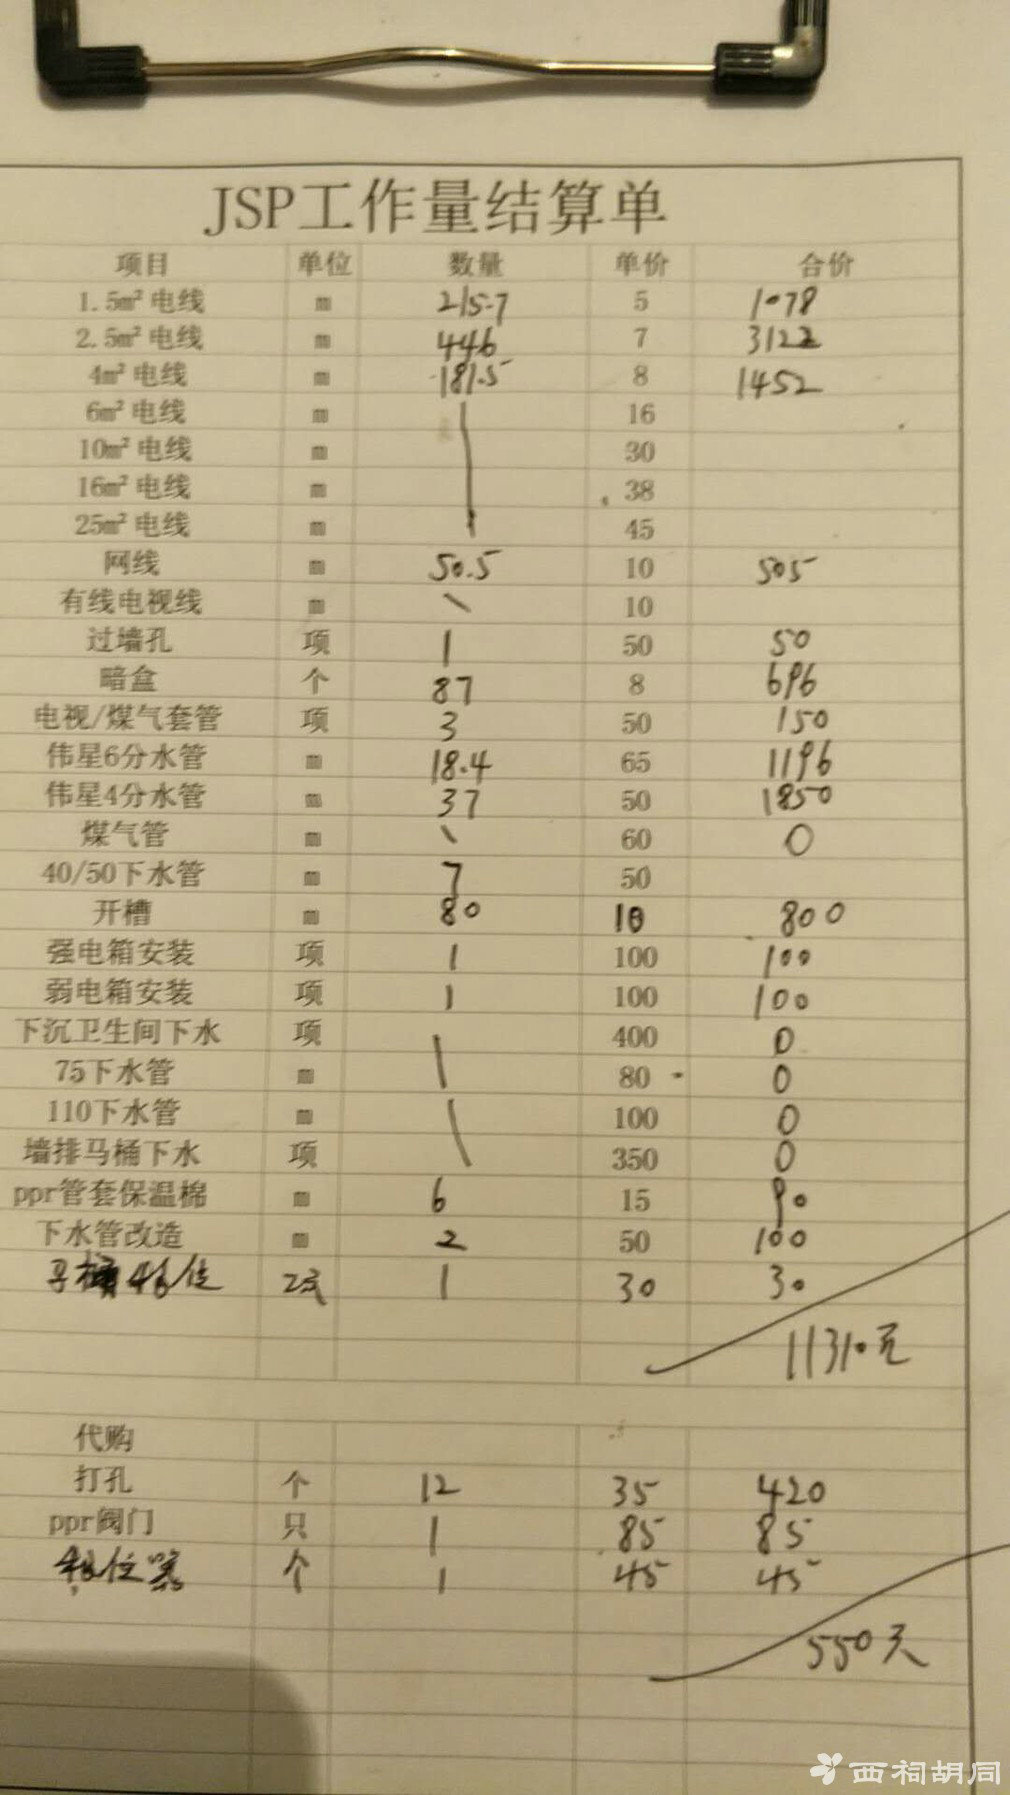 JSP工作量结算单
项目 单位 数量 单价 合价
1.5m² 电线 m 215.7 5 1078
2.5m² 电线 m 446 7 3122
4m² 电线 m 181.5 8 1452
6m² 电线 m 16
10m² 电线 m 30
16m² 电线 m 38
25m² 电线 m 45
网线 m 50.5 10 505
有线电视线 m 10
过墙孔 项 1 50 50
暗盒 个 87 8 696
电视/煤气套管 项 3 50 150
伟星6分水管 m 18.4 65 1196
伟星4分水管 m 37 50 1850
煤气管 m 60 0
40/50下水管 m 7 50
开槽 m 80 10 800
强电箱安装 项 1 100 100
弱电箱安装 项 1 100 100
下沉卫生间下水 项 400 0
75下水管 m 80 0
110下水管 m 100 0
墙排马桶下水 项 350 0
ppr管套保温棉 m 6 15 90
下水管改造 m 2 50 100
马桶移位 1 30 30
11310元
代购
打孔 个 12 35 420
ppr阀门 只 1 85 85
移位器 个 1 45 45
550元
西祠胡同